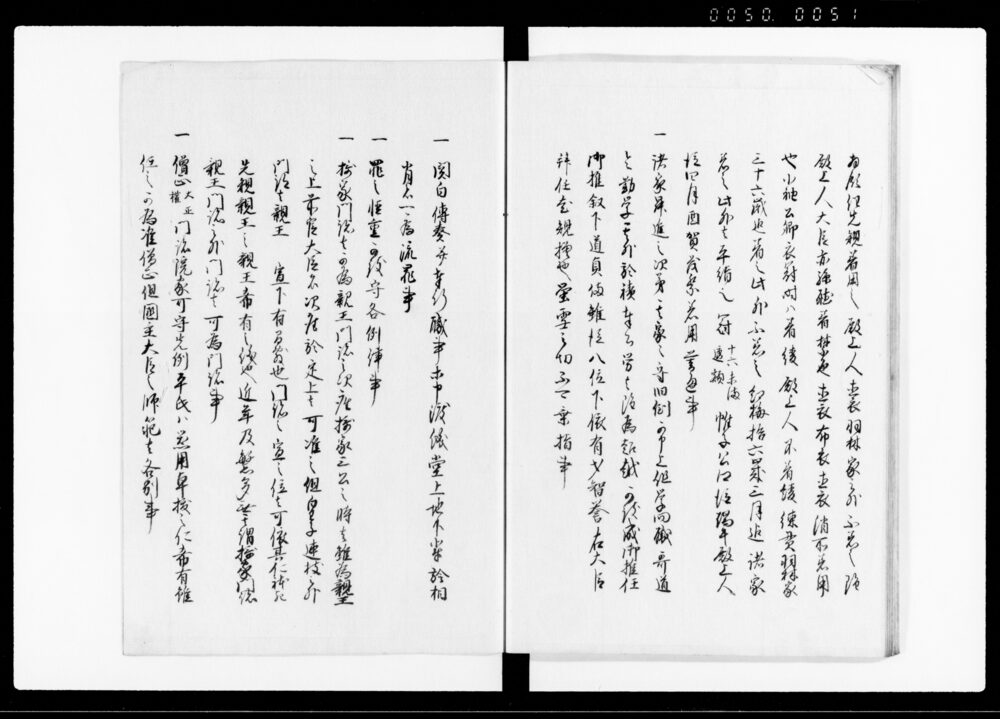 0050. 0051
為殿紅先親着用之殿上人直衣羽林家之外不着之雖
殿上人大臣亦孫聴着禁色直衣布衣直衣消所着用
也小袖公卿衣冠時ハ着綾殿上人不着綾練貫羽林家
三十六歳迄着之此外不着之紅梅拾六歳三月迄諸家
着之此外者平絹之冠十六未満透額帷子公卿従端午殿上人
従四月酉賀茂祭着用普通事
一 諸家昇進之次第其家々守旧例可申上但学問職哥道
令勤学其外於積奉公労者雖為超越可被成御推任
御推叙下道真備雖従八位下依有才智誉右大臣
拝任尤規模也蛍雪之功不可棄捐事
一 関白傳奏并奉行職事等申渡儀堂上地下輩於相
背者可為流罪事
一 罪之軽重可被守各例律事
一 摂家門跡者可為親王門跡之次座摂家三公之時者雖為親王
之上前官大臣者次座於定上者可准之但皇子連枝外
門跡者親王 宣下有間敷也門跡之室之位者可依其仁躰
先規親王之親王希有之儀也近年及繁多無其謂摂家門跡
親王門跡之外門跡者可為門跡事
一 僧正大正権門跡院家可守先例平民ハ器用卓抜之仁希有雖
任之可為准僧正但國王大臣之師範者各別事